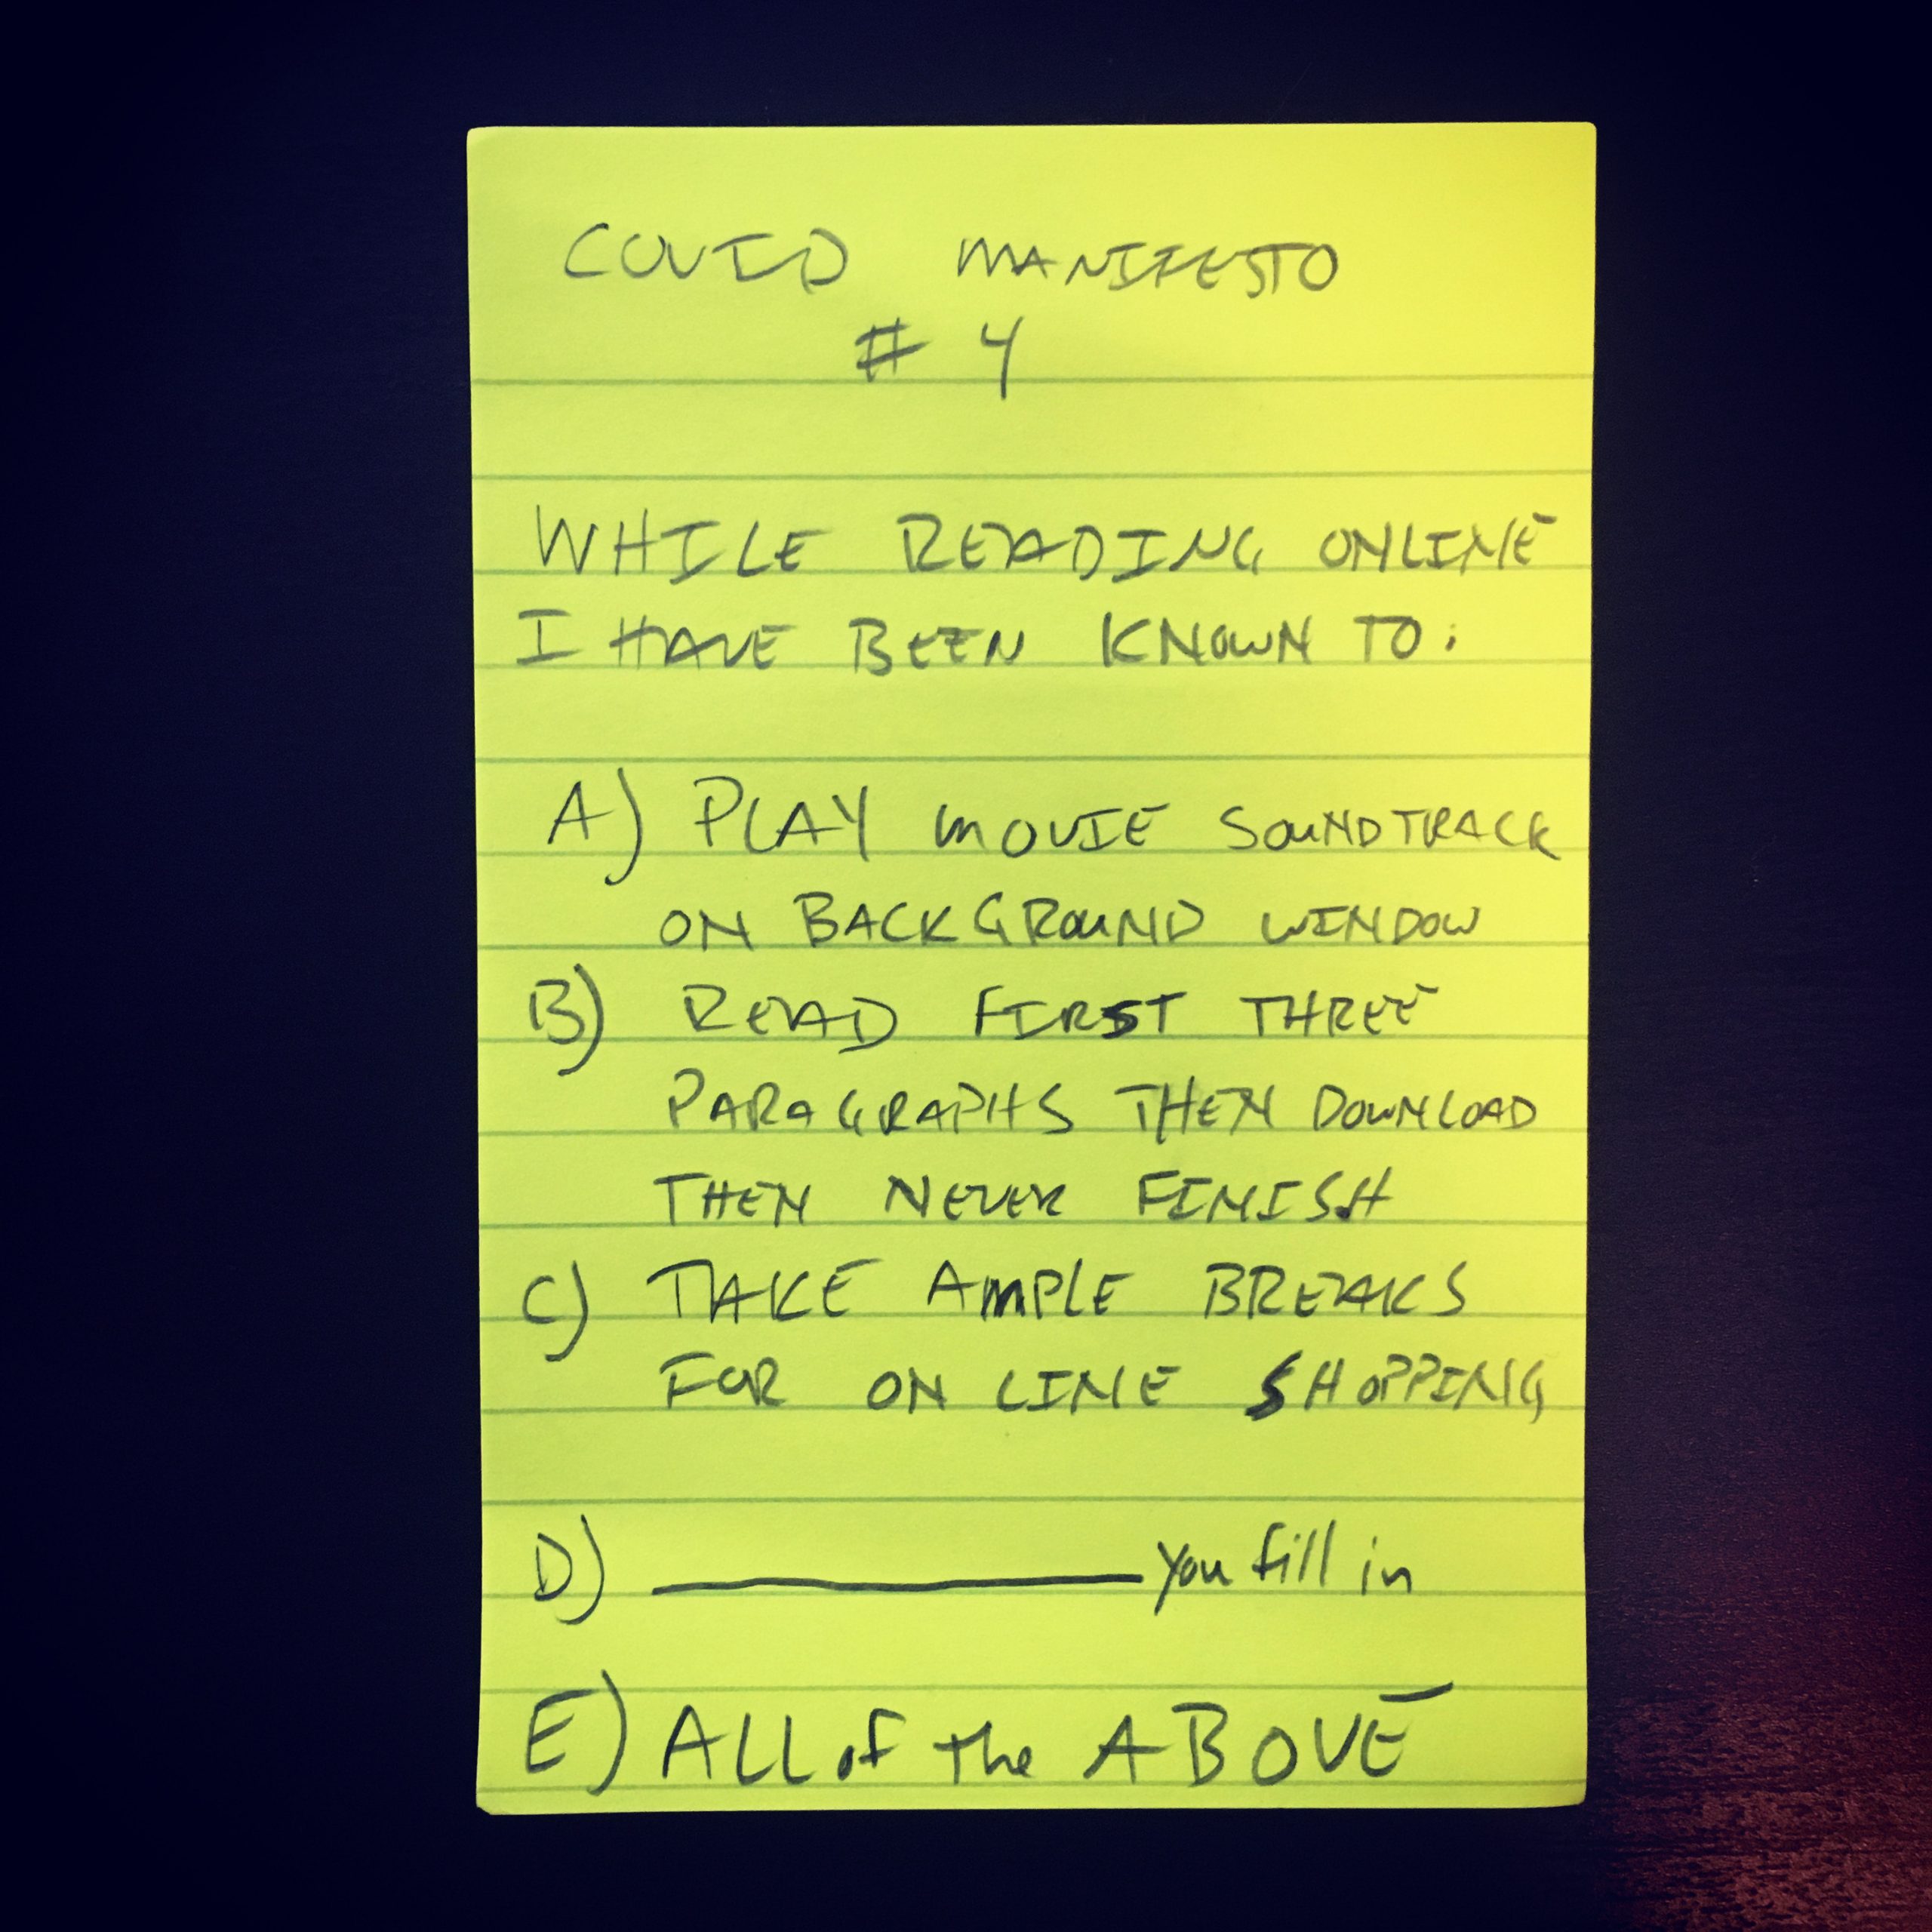 COVID MANIFESTO
# 4
WHILE READING ONLINE
I HAVE BEEN KNOWN TO:
A) PLAY MOVIE SOUNDTRACK
ON BACKGROUND WINDOW
B) READ FIRST THREE
PARAGRAPHS THEN DOWNLOAD
THEN NEVER FINISH
C) TAKE AMPLE BREAKS
FOR ON LINE SHOPPING
D) __________ you fill in
E) ALL of the ABOVE